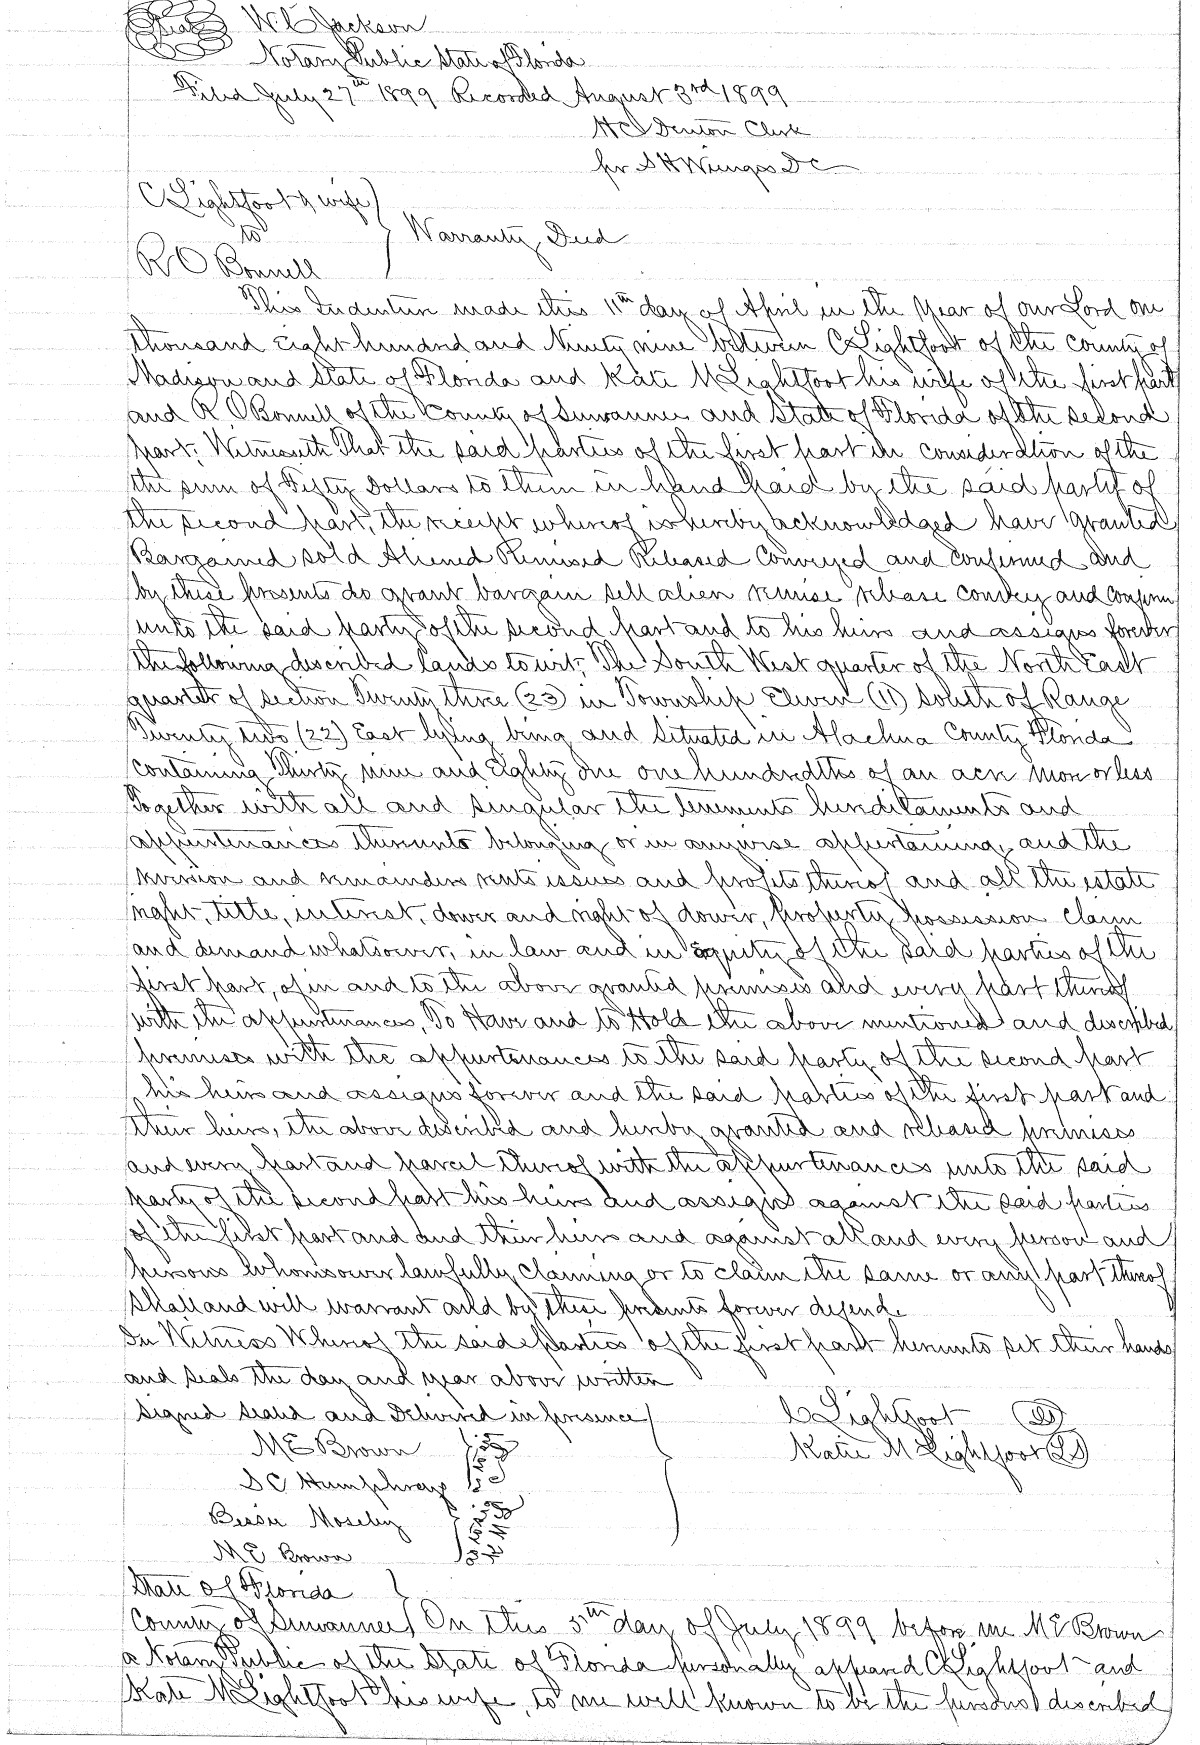 Seal W C Jackson
Notary Public State of Florida
Filed July 27th 1899 Recorded August 3rd 1899
H C Denton Clerk
for S H Wienges D C
C Lightfoot & wife
to
Warranty Deed
R O Bonnell
This Indenture made this 11th day of April in the Year of our Lord one
thousand Eight hundred and Ninety nine between C Lightfoot of the County of
Madison and State of Florida and Kate M Lightfoot his wife of the first part
and R. O Bonnell of the County of Suwannee and State of Florida of the second
part; Witnesseth That the said parties of the first part in consideration of the
the sum of Fifty Dollars to them in hand paid by the said party of
the second part, the receipt whereof is hereby acknowledged have granted
Bargained sold Aliened Remised Released Conveyed and confirmed and
by these presents do grant bargain sell alien remise release convey and confirm
unto the said party of the second part and to his heirs and assigns forever
the following described lands to wit; The South West quarter of the North East
quarter of section Twenty three (23) in Township Eleven (11) South of Range
Twenty two (22) East lying being and Situated in Alachua County Florida
containing Thirty nine and Eighty one one hundredths of an acre more or less
Together with all and singular the tenements hereditaments and
appurtenances thereunto belonging or in anywise appertaining, and the
reversion and remainders rents issues and profits thereof and all the estate
right, title, interest, dower and right of dower, property possession claim
and demand whatsoever, in law and in equity of the said parties of the
first part, of in and to the above granted premises and every part thereof
with the appurtenances, To Have and to Hold the above mentioned and described
premises with the appurtenances to the said party of the second part
his heirs and assigns forever and the said parties of the first part and
their heirs, the above described and hereby granted and released premises
and every part and parcel thereof with the appurtenances unto the said
party of the second part his heirs and assigns against the said parties
of the first part and and their heirs and against all and every person and
persons whomsoever lawfully claiming or to claim the same or any part thereof
shall and will warrant and by these presents forever defend.
In Witness Whereof the said parties of the first part hereunto set their hands
and seals the day and year above written
Signed sealed and Delivered in presence C Lightfoot (LS)
M E Brown Katie M Lightfoot (LS)
S C Humphreys
Bessie Moseley
M E Brown
State of Florida
County of Suwannee On this 5th day of July 1899 before me M E Brown
a Notary Public of the State of Florida personally appeared C Lightfoot and
Kate M Lightfoot his wife, to me well known to be the persons described